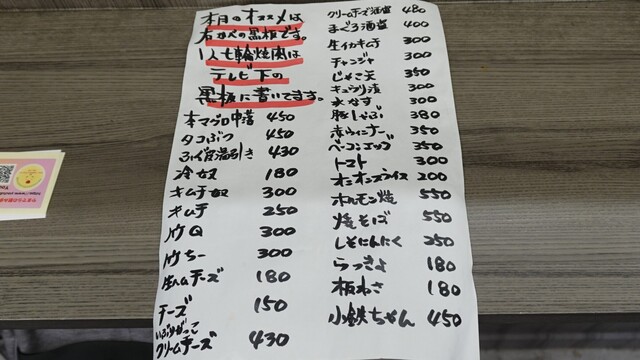 本日のオススメは
右かべの黒板です。
1人七輪焼肉は
テレビ下の
黒板に書いてます。
本マグロ中落 450
タコぶつ 450
ふぐ皮湯引き 430
冷奴 180
キムチ奴 300
キムチ 250
竹Q 300
竹ちー 300
生ハムチーズ 180
チーズ 150
いぶりがっこ
クリームチーズ 430
クリームチーズ酒盗 480
まぐろ酒盗 400
生イカキムチ 300
チャンジャ 300
じゃこ天 350
キュウリ漬 300
水なす 300
豚しゃぶ 380
赤ウィンナー 350
ベーコンエッグ 350
トマト 300
オニオンスライス 200
ホルモン焼 550
焼そば 550
しそにんにく 250
らっきょ 180
板わさ 180
小鉄ちゃん 450